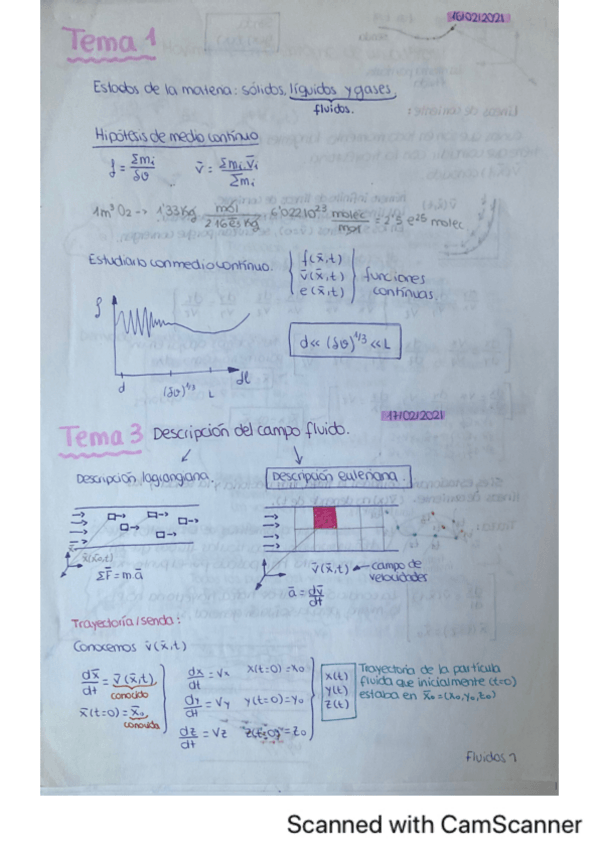 16/02/2021
Tema 1
Estados de la materia: sólidos, líquidos y gases.
fluidos.
Hipótesis de medio continuo
ρ = Σmi / δϑ    v̄ = Σmi v̄i / Σmi
1m³ O2 -> 1'33 Kg mol / 2·16e-3 Kg 6'022·10^23 molec / mol = 2'5 e^25 molec
Estudiarlo con medio continuo. { ρ(x̄,t) v̄(x̄,t) e(x̄,t) } funciones continuas.
ρ
d << (δϑ)^1/3 << L
d (δϑ)^1/3 L dl
17/02/2021
Tema 3 Descripción del campo fluido.
Descripción lagrangiana. Descripción euleriana.
x̄(x̄0,t) v̄(x̄,t) ← campo de velocidades
ΣF̄ = m ā ā = dv̄/dt
Trayectoria/senda:
Conocemos v̄(x̄,t)
dx̄/dt = v̄(x̄,t) conocido
x̄(t=0) = x̄0 conocida
dx/dt = Vx x(t=0) = x0
dy/dt = Vy y(t=0) = y0
dz/dt = Vz z(t=0) = z0
x(t)
y(t)
z(t)
Trayectoria de la partícula
fluida que inicialmente (t=0)
estaba en x̄0 = (x0, y0, z0)
Fluidos 1
Scanned with CamScanner